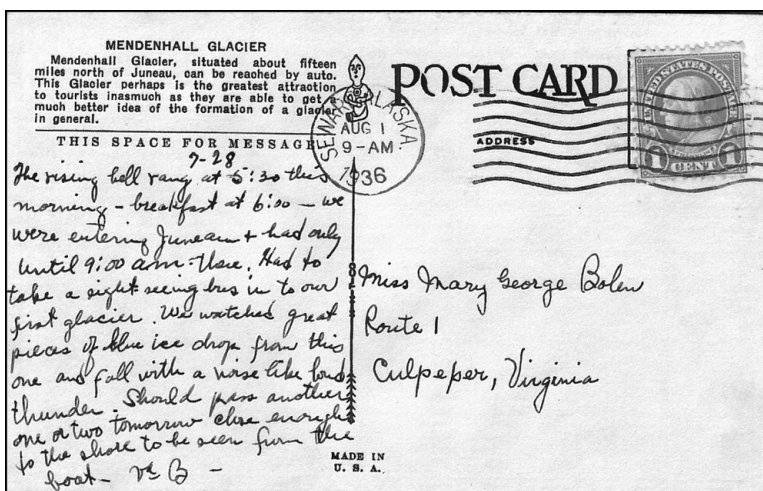 MENDENHALL GLACIER
Mendenhall Glacier, situated about fifteen
miles north of Juneau, can be reached by auto.
This Glacier perhaps is the greatest attraction
to tourists inasmuch as they are able to get a
much better idea of the formation of a glacier
in general.
THIS SPACE FOR MESSAGE
7-28
The rising bell rang at 5:30 this
morning - breakfast at 6:00 - we
were entering Juneau + had only
until 9:00 a.m. there. Had to
take a sight seeing bus in to our
first glacier. We watched great
pieces of blue ice drop from this
one and fall with a noise like loud
thunder. Should pass another
one or two tomorrow close enough
to the shore to be seen from the
boat -
B -
POST CARD
ADDRESS
SEWARD, ALASKA.
AUG 1
9-AM
1936
UNITED STATES POSTAGE
FRANKLIN
1 CENT 1
Miss Mary George Bolen
Route 1
Culpeper, Virginia
MADE IN
U. S. A.